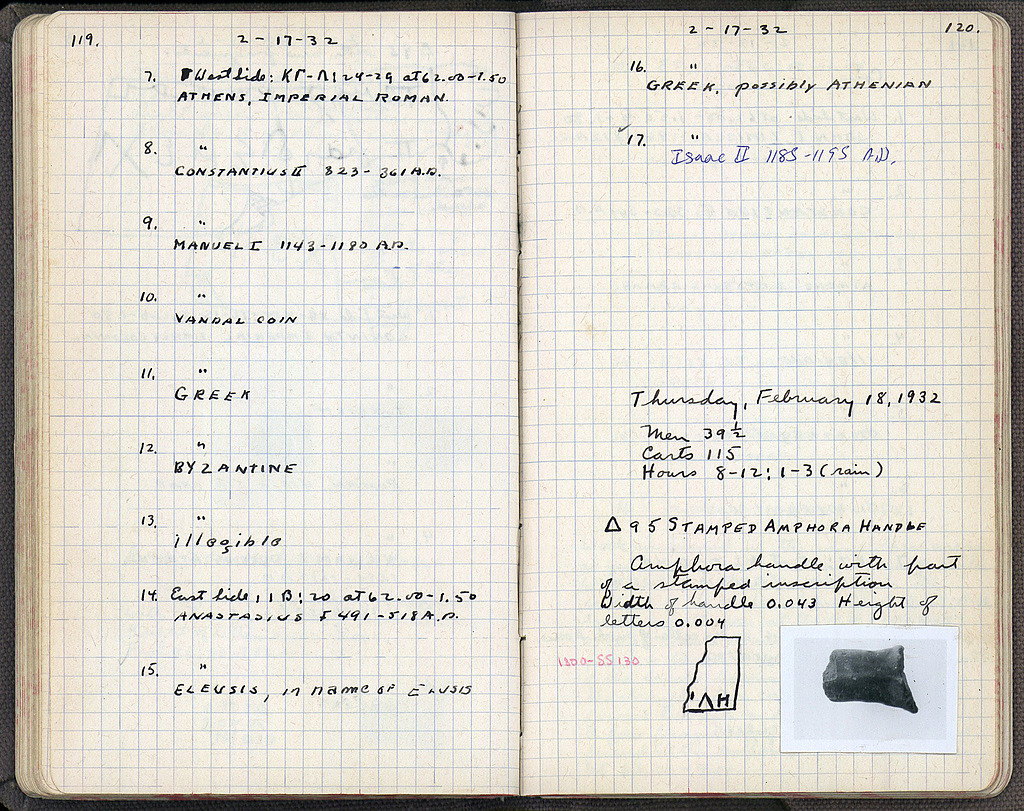 119.
2 - 17 - 32
7. West Side: ΚΓ-Λ: 24-29 at 62.00-1.50
ATHENS, IMPERIAL ROMAN.
8. "
CONSTANTIUS II 323 - 361 A.D.
9. "
MANUEL I 1143-1180 A.D.
10. "
VANDAL COIN
11. "
GREEK
12. "
BYZANTINE
13. "
illegible
14. East Side; : 20 at 62.00-1.50
ANASTASIUS I 491-518 A.D.
15. "
ELEUSIS, in name of ELUSIS
2 - 17 - 32
120.
16. "
GREEK, possibly ATHENIAN
✓ 17. "
Isaac II 1185-1195 A.D.
Thursday, February 18, 1932
Men 39 ½
Carts 115
Hours 8-12; 1-3 (rain)
Δ 95 STAMPED AMPHORA HANDLE
Amphora handle with part
of a stamped inscription
Width of handle 0.043 Height of
letters 0.004
1200-SS 130
'ΛΗ